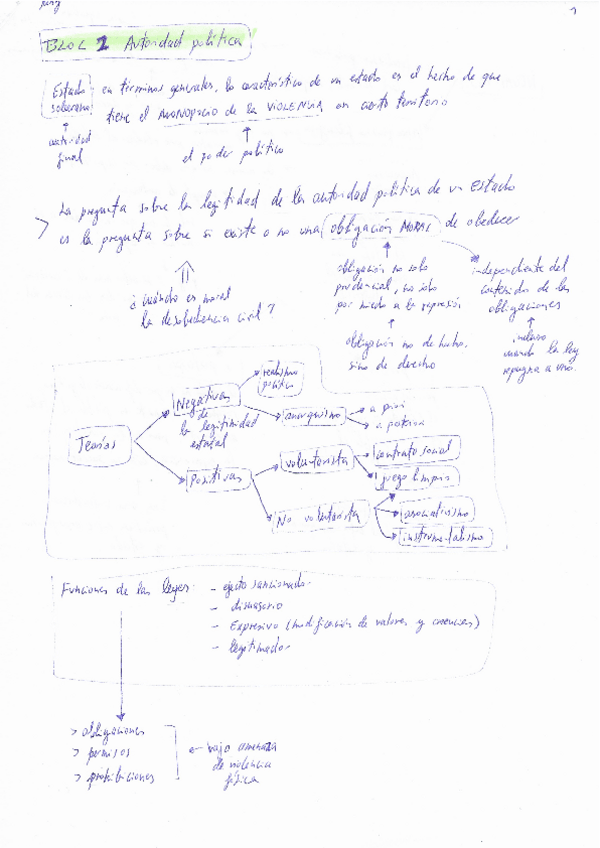 1
BLOC 1 Autoridad política
Estado soberano en términos generales, lo característico de un estado es el hecho de que
tiene el MONOPOLIO de la VIOLENCIA en cierto territorio
autoridad final
el poder político
La pregunta sobre la legitidad de la autoridad política de un Estado
> es la pregunta sobre si existe o no una obligación MORAL de obedecer
¿cuándo es moral
la desobediencia civil?
obligación no solo
prudencial, no solo
por miedo a la represión
independiente del
contenido de las
obligaciones
obligación no de hecho,
sino de derecho
incluso
cuando la ley
repugna a uno.
Teorías
Negativas
de
la legitimidad
estatal
realismo
político
anarquismo
a priori
a posteriori
positivas
voluntarista
contrato social
juego limpio
No voluntarista
asociativismo
instrumentalismo
Funciones de las leyes: - efecto sancionador
- disuasorio
- Expresivo (modificación de valores y creencias)
- legitimador
> obligaciones
> permisos
> prohibiciones
bajo amenaza
de violencia
física